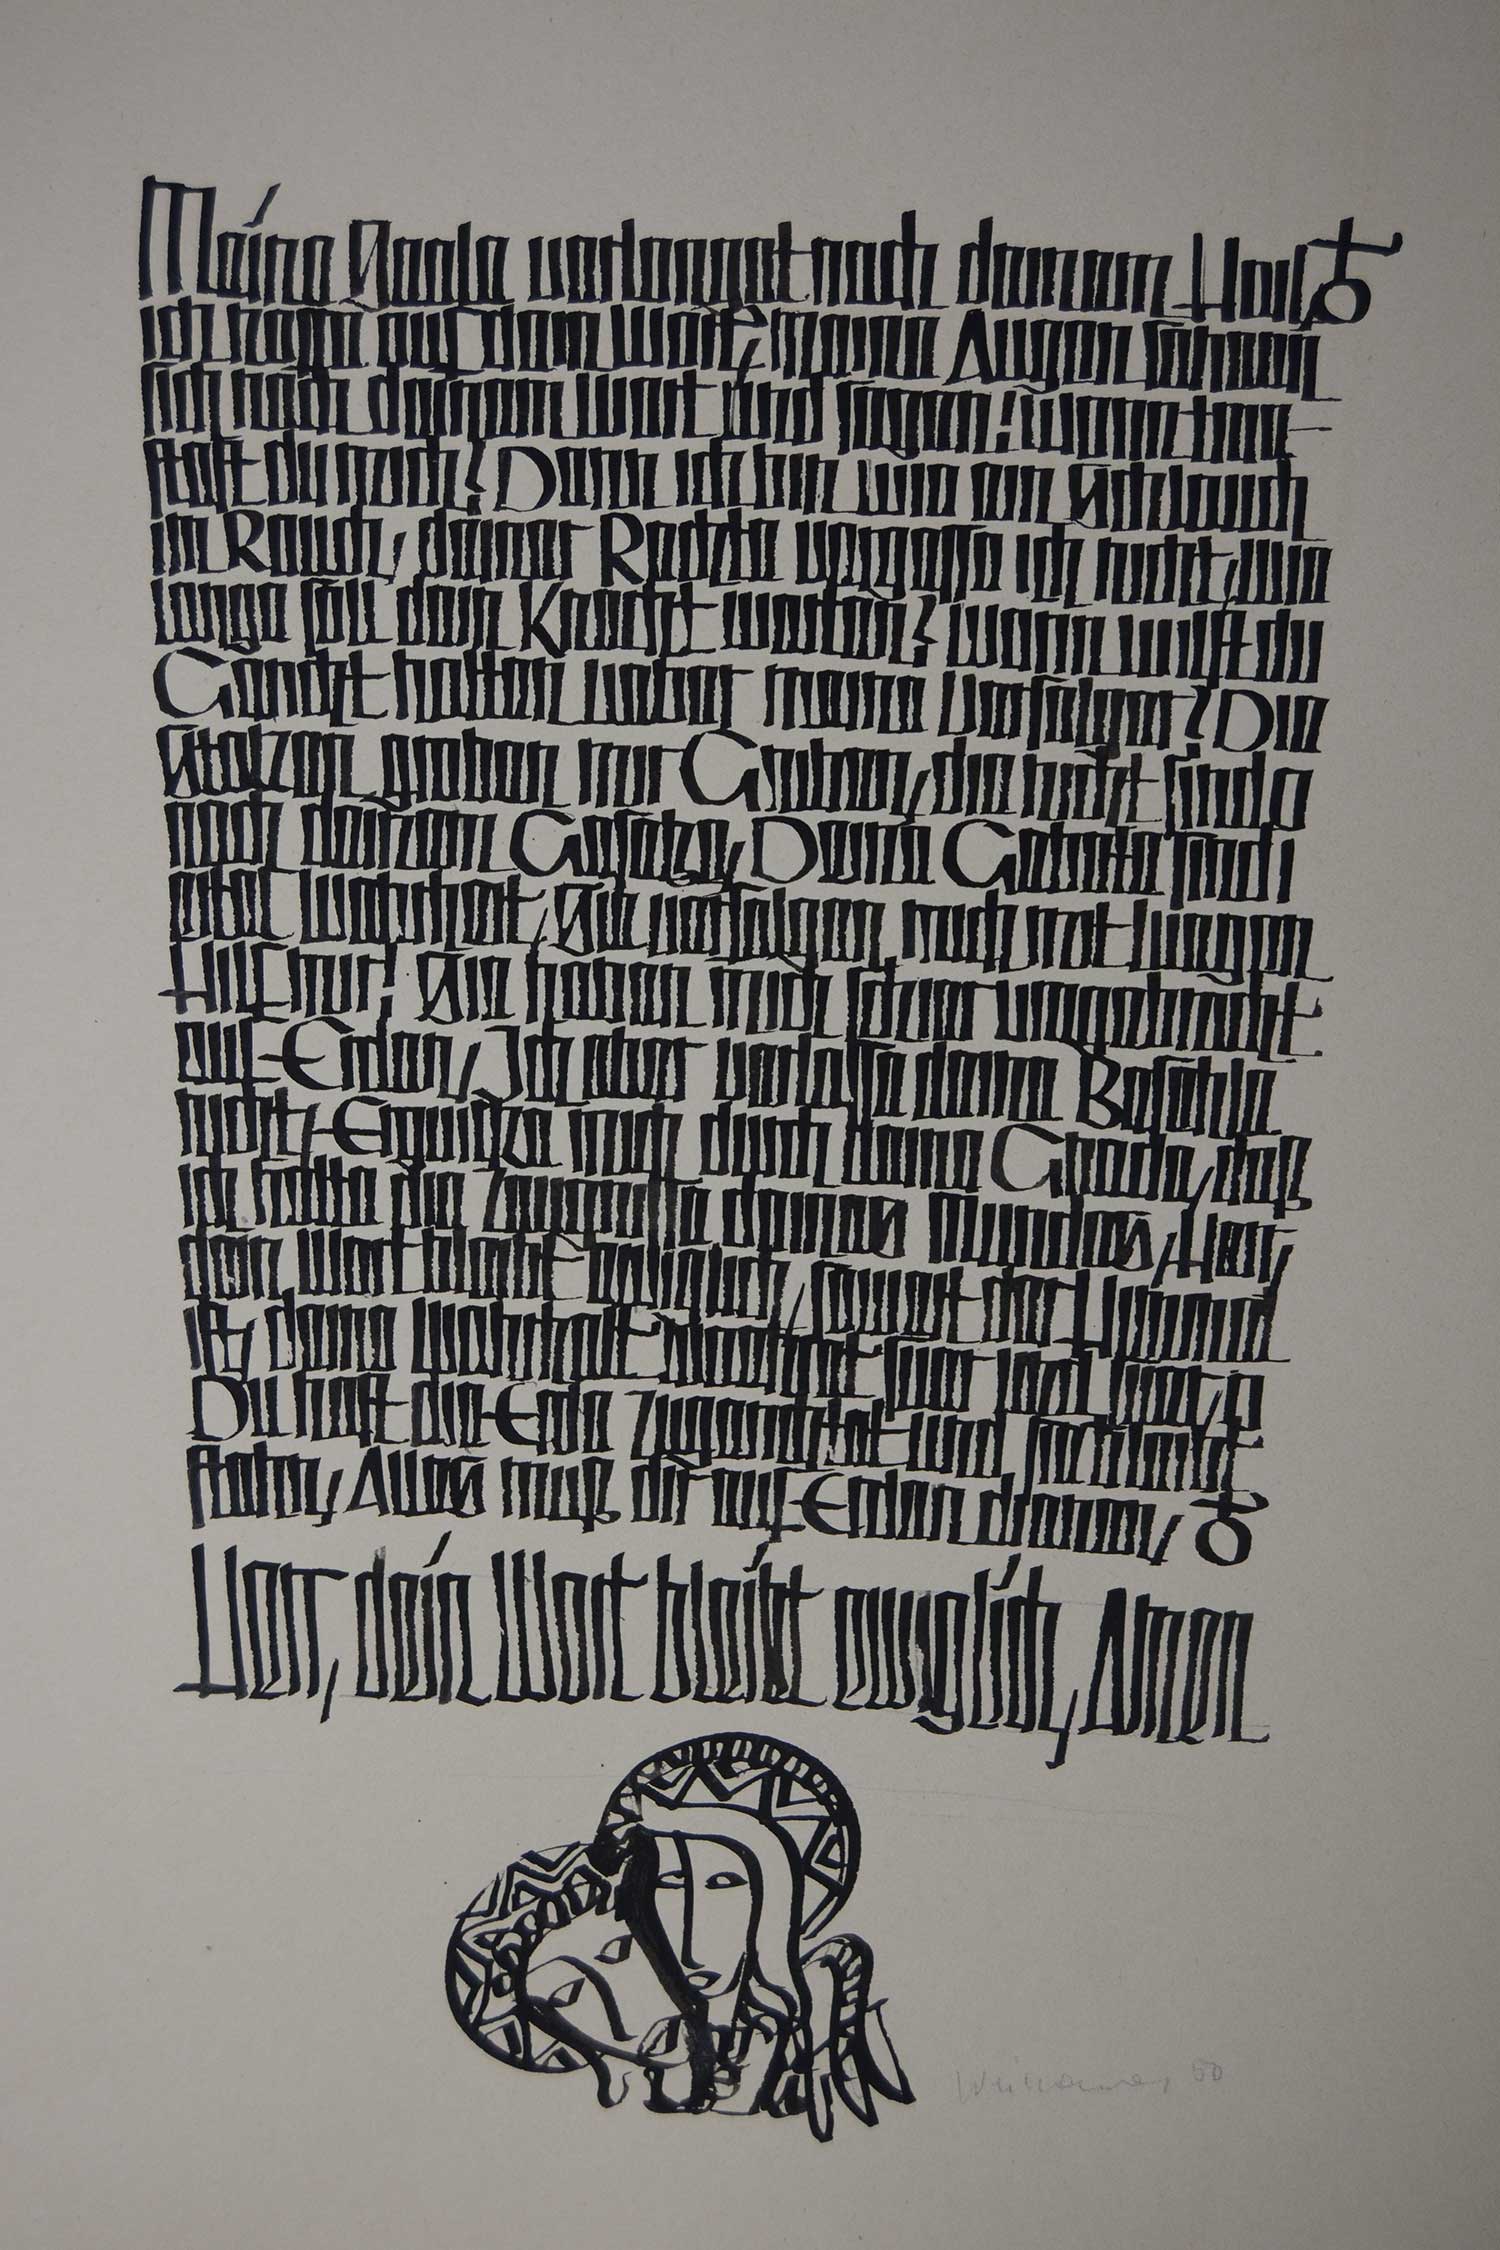 Meine Seele verlanget nach deinem Heil
ich hoffe auf dein Wort, meine Augen sehnen
sich nach deinem Wort und sagen! Wann troe-
stest du mich? Denn ich bin wie ein Schlauch
im Rauch, deiner Rechte vergesse ich nicht, wie
lange soll dein Knecht warten? Wann wilst du
Gericht halten ueber meine Verfolger? Die
Stolzen graben mir Gruben, die nicht sind
nach deinem Gesetze, Deine Gebote sind
eitel Wahrheit, Sie verfolgen mich mit Luegen
Hilf mir! Sie haben mich schier umgebracht
auf Erden, Ich aber verlasse deine Befehle
nicht, Erquicke mich durch deine Gnade, daß
ich halte die Zeugnisse deines Mundes, Herr,
dein Wort bleibt ewiglich, soweit der Himmel
ist, deine Wahrheit waehret fuer fuer,
Du hast die Erde zugerichtet und sie bleibt
stehn, Alles muß dir auf Erden dienen,
Herr, dein Wort bleibt ewiglich, Amen
50